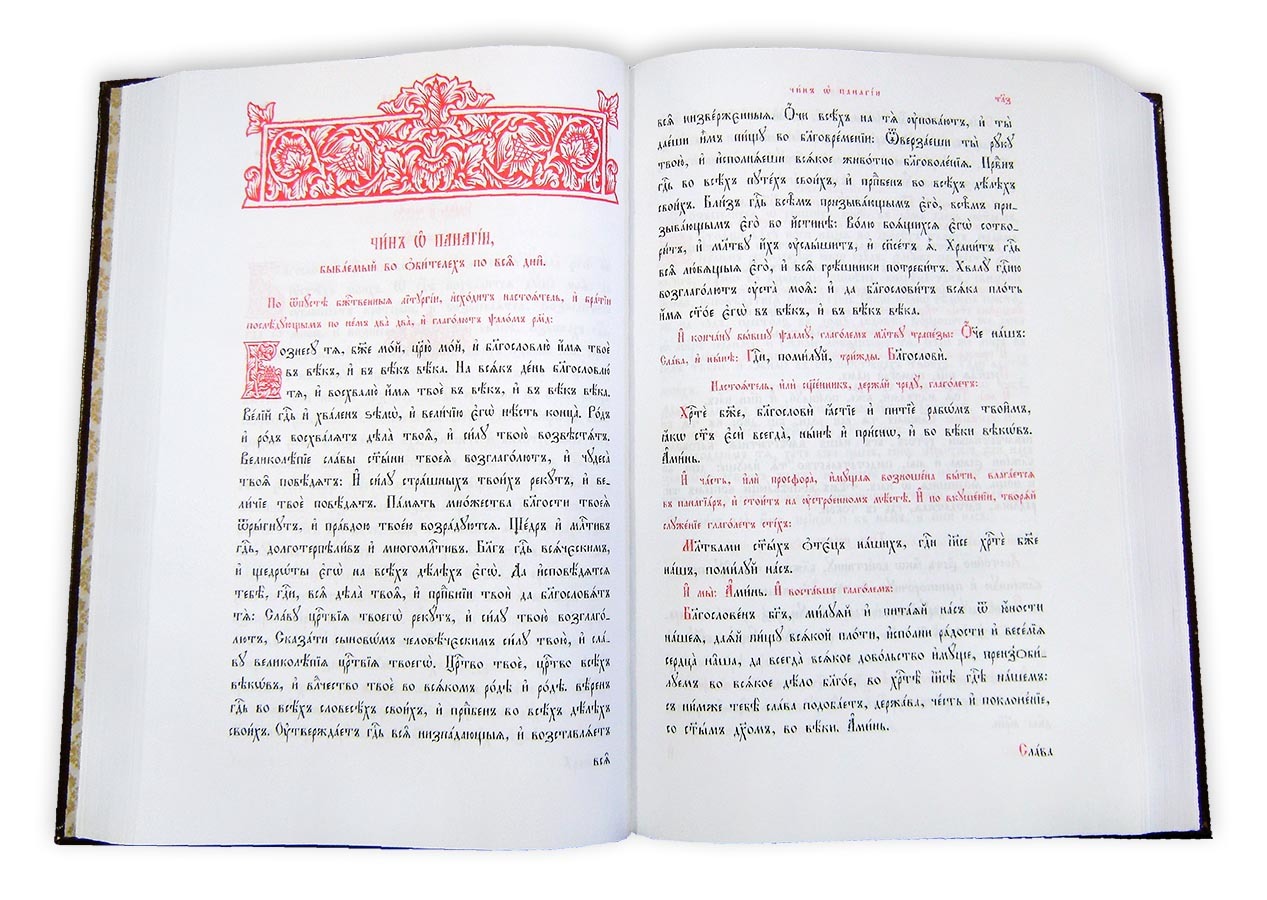 Чи́нъ ѡ҆ панагі́и,
быва́емый во ѻ҆би́телехъ по всѧ̑ дни̑.
По ѿпꙋ́стѣ бж҃ственныѧ лїтꙋргі́и, и҆схо́дитъ настоѧ́тель, и҆ бра́тїи
послѣ́дꙋющымъ по не́мъ два̀ два̀, и҆ глаго́лютъ ѱало́мъ рм҃д:
Вознесꙋ́ тѧ, бж҃е мо́й, цр҃ю̀ мо́й, и҆ блг҃ословлю̀ и҆́мѧ твоѐ
въ вѣ́къ, и҆ въ вѣ́къ вѣ́ка. На всѧ́къ де́нь блг҃ословлю̀
тѧ̀, и҆ восхвалю̀ и҆́мѧ твоѐ въ вѣ́къ, и҆ въ вѣ́къ вѣ́ка.
Ве́лїй гдⷭ҇ь и҆ хва́ленъ ѕѣлѡ̀, и҆ вели́чїю є҆гѡ̀ нѣ́сть конца̀. Ро́дъ
и҆ ро́дъ восхва́лѧтъ дѣла̀ твоѧ̑, и҆ си́лꙋ твою̀ возвѣстѧ́тъ.
Великолѣ́пїе сла́вы ст҃ы́ни твоеѧ̀ возглаго́лютъ, и҆ чꙋдеса̀
твоѧ̑ повѣ́дѧтъ: И҆ си́лꙋ стра́шныхъ твои́хъ рекꙋ́тъ, и҆ ве-
ли́чїе твоѐ повѣ́дѧтъ. Па́мѧть мно́жества бл҃гости твоеѧ̀
ѿры́гнꙋтъ, и҆ пра́вдою твоею̀ возра́дꙋютсѧ. Ще́дръ и҆ млⷭ҇тивъ
гдⷭ҇ь, долготерпѣли́въ и҆ многомлⷭ҇тивъ. Бл҃гъ гдⷭ҇ь всѧ́ческимъ,
и҆ щедрѡ́ты є҆гѡ̀ на всѣ́хъ дѣ́лѣхъ є҆гѡ̀. Да и҆сповѣ́дѧтсѧ
тебѣ̀, гдⷭ҇и, всѧ̑ дѣла̀ твоѧ̑, и҆ прпⷣбнїи твоѝ да блг҃ословѧ́тъ
тѧ̀: Сла́вꙋ црⷭ҇твїѧ твоегѡ̀ рекꙋ́тъ, и҆ си́лꙋ твою̀ возглаго́-
лютъ, Сказа́ти сыновѡ́мъ человѣ́ческимъ си́лꙋ твою̀, и҆ сла́-
вꙋ великолѣ́пїѧ црⷭ҇твїѧ твоегѡ̀. Црⷭ҇тво твоѐ, црⷭ҇тво всѣ́хъ
вѣкѡ́въ, и҆ влⷣчество твоѐ во всѧ́комъ ро́дѣ и҆ ро́дѣ. вѣ́ренъ
гдⷭ҇ь во всѣ́хъ словесѣ́хъ свои́хъ, и҆ прпⷣбенъ во всѣ́хъ дѣ́лѣхъ
свои́хъ. Оу҆твержда́етъ гдⷭ҇ь всѧ̑ низпа́дающыѧ, и҆ возставлѧ́етъ
всѧ̑
Чи́нъ ѡ҆ панагі́и
всѧ̑ низве́рженныѧ. Ѻ҆́чи всѣ́хъ на тѧ̀ ᲂу҆пова́ютъ, и҆ ты̀
дае́ши и҆̀мъ пи́щꙋ во бл҃говре́менїи: Ѿверза́еши ты̀ рꙋ́кꙋ
твою̀, и҆ и҆сполнѧ́еши всѧ́кое живо́тно бл҃говоле́нїѧ. Прⷣвнъ
гдⷭ҇ь во всѣ́хъ пꙋте́хъ свои́хъ, и҆ прпⷣбенъ во всѣ́хъ дѣ́лѣхъ
свои́хъ. Бли́зъ гдⷭ҇ь всѣ̑мъ призыва́ющымъ є҆го̀, всѣ̑мъ при-
зыва́ющымъ є҆го̀ во и҆́стинѣ: Во́лю боѧ́щихсѧ є҆гѡ̀ сотво-
ри́тъ, и҆ мл҃твꙋ и҆́хъ ᲂу҆слы́шитъ, и҆ сп҃се́тъ ѧ҆̀. Храни́тъ гдⷭ҇ь
всѧ̑ лю́бѧщыѧ є҆го̀, и҆ всѧ̑ грѣ́шники потреби́тъ. Хвалꙋ̀ гдⷭ҇ню
возглаго́лютъ ᲂу҆ста̀ моѧ̑: и҆ да блг҃ослови́тъ всѧ́ка пло́ть
и҆́мѧ ст҃о́е є҆гѡ̀ въ вѣ́къ, и҆ въ вѣ́къ вѣ́ка.
И҆ конча́нꙋ бы́вшꙋ ѱалмꙋ̀, глаго́лемъ мл҃твꙋ трапе́зы: Ѻ҆́ч҃е на́шъ:
Сла́ва, и҆ ны́нѣ: Гдⷭ҇и, поми́лꙋй, три́жды. Блг҃ословѝ.
Настоѧ́тель, и҆лѝ сщ҃е́нникъ, держа́й чредꙋ̀, глаго́летъ:
Хрⷭ҇тѐ бж҃е, блг҃ословѝ ꙗ҆́стїе и҆ питїѐ рабѡ́мъ твои̑мъ,
ꙗ҆́кѡ ст҃ъ є҆сѝ всегда̀, ны́нѣ и҆ при́снѡ, и҆ во вѣ́ки вѣкѡ́въ.
А҆ми́нь.
И҆ ча́сть, и҆лѝ просфора̀, и҆мꙋ́щаѧ возноше́на бы́ти, влага́етсѧ
въ панагїа́ръ, и҆ стои́тъ на ᲂу҆стро́енномъ мѣ́стѣ. И҆ по вкꙋше́нїи, творѧ́й
слꙋже́нїе глаго́летъ сті́хъ:
Мл҃твами ст҃ы́хъ ѻ҆тє́цъ на́шихъ, гдⷭ҇и і҆и҃се хрⷭ҇тѐ бж҃е
на́шъ, поми́лꙋй на́съ.
И҆ мы̀: А҆ми́нь. И҆ воста́вше глаго́лемъ:
Блг҃ослове́нъ бг҃ъ, ми́лꙋѧй и҆ пита́ѧй на́съ ѿ ю҆́ности
на́шеѧ, даѧ́й пи́щꙋ всѧ́кой пло́ти, и҆спо́лни ра́дости и҆ весе́лїѧ
сердца̀ на̑ша, да всегда̀ всѧ́кое дово́льство и҆мꙋ́ще, преизоби́-
лꙋемъ во всѧ́кое дѣ́ло бл҃го́е, ѡ҆ хрⷭ҇тѣ̀ і҆и҃сѣ гдⷭ҇ѣ на́шемъ:
съ ни́мже тебѣ̀ сла́ва подоба́етъ, держа́ва, че́сть и҆ поклоне́нїе,
со ст҃ы́мъ дх҃омъ, во вѣ́ки. А҆ми́нь.
Сла́ва